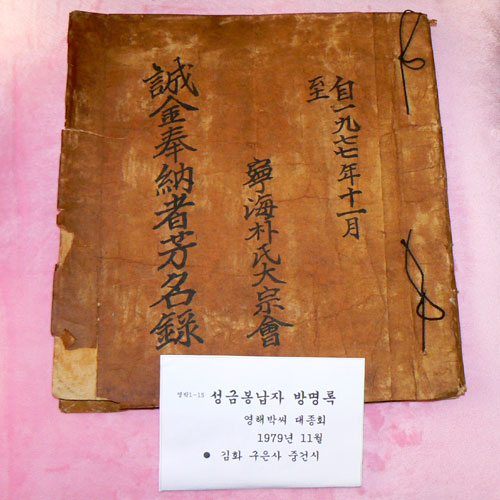 自一九七七年十一月
至
寧海朴氏大宗會
誠金奉納者芳名錄
성금봉납자 방명록
영해박씨 대종회
1979년 11월
● 김화 구은사 중건시